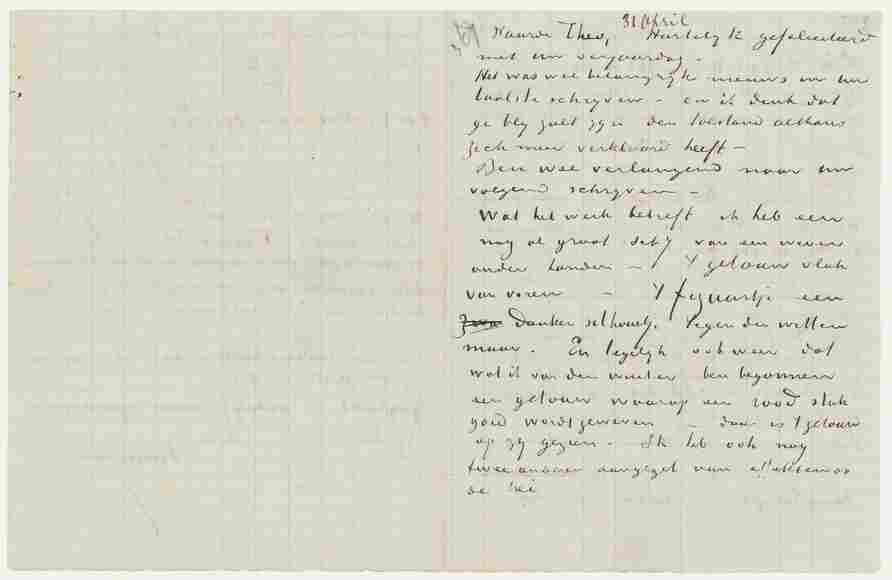 31 April
Waarde Theo, Hartelyk gefeliciteerd
met uw verjaardag –
Het was wel belangryk nieuws in uw
laatste schryven – en ik denk dat
ge bly zult zyn den toestand althans
zich meer verklaard heeft –
Ben wel verlangend naar uw
volgend schryven –
Wat het werk betreft ik heb een
nog al groot schy van een wever
onder handen – 't getouw vlak
van voren – 't figuurtje een
donker silhouetje tegen den witten
muur. En tegelyk ook weer dat
wat ik van den winter ben begonnen
een getouw waarop een rood stuk
goed wordt geweven – daar is 't getouw
op zy gezien – Ik heb ook nog
twee anderen aangezet van
de hei